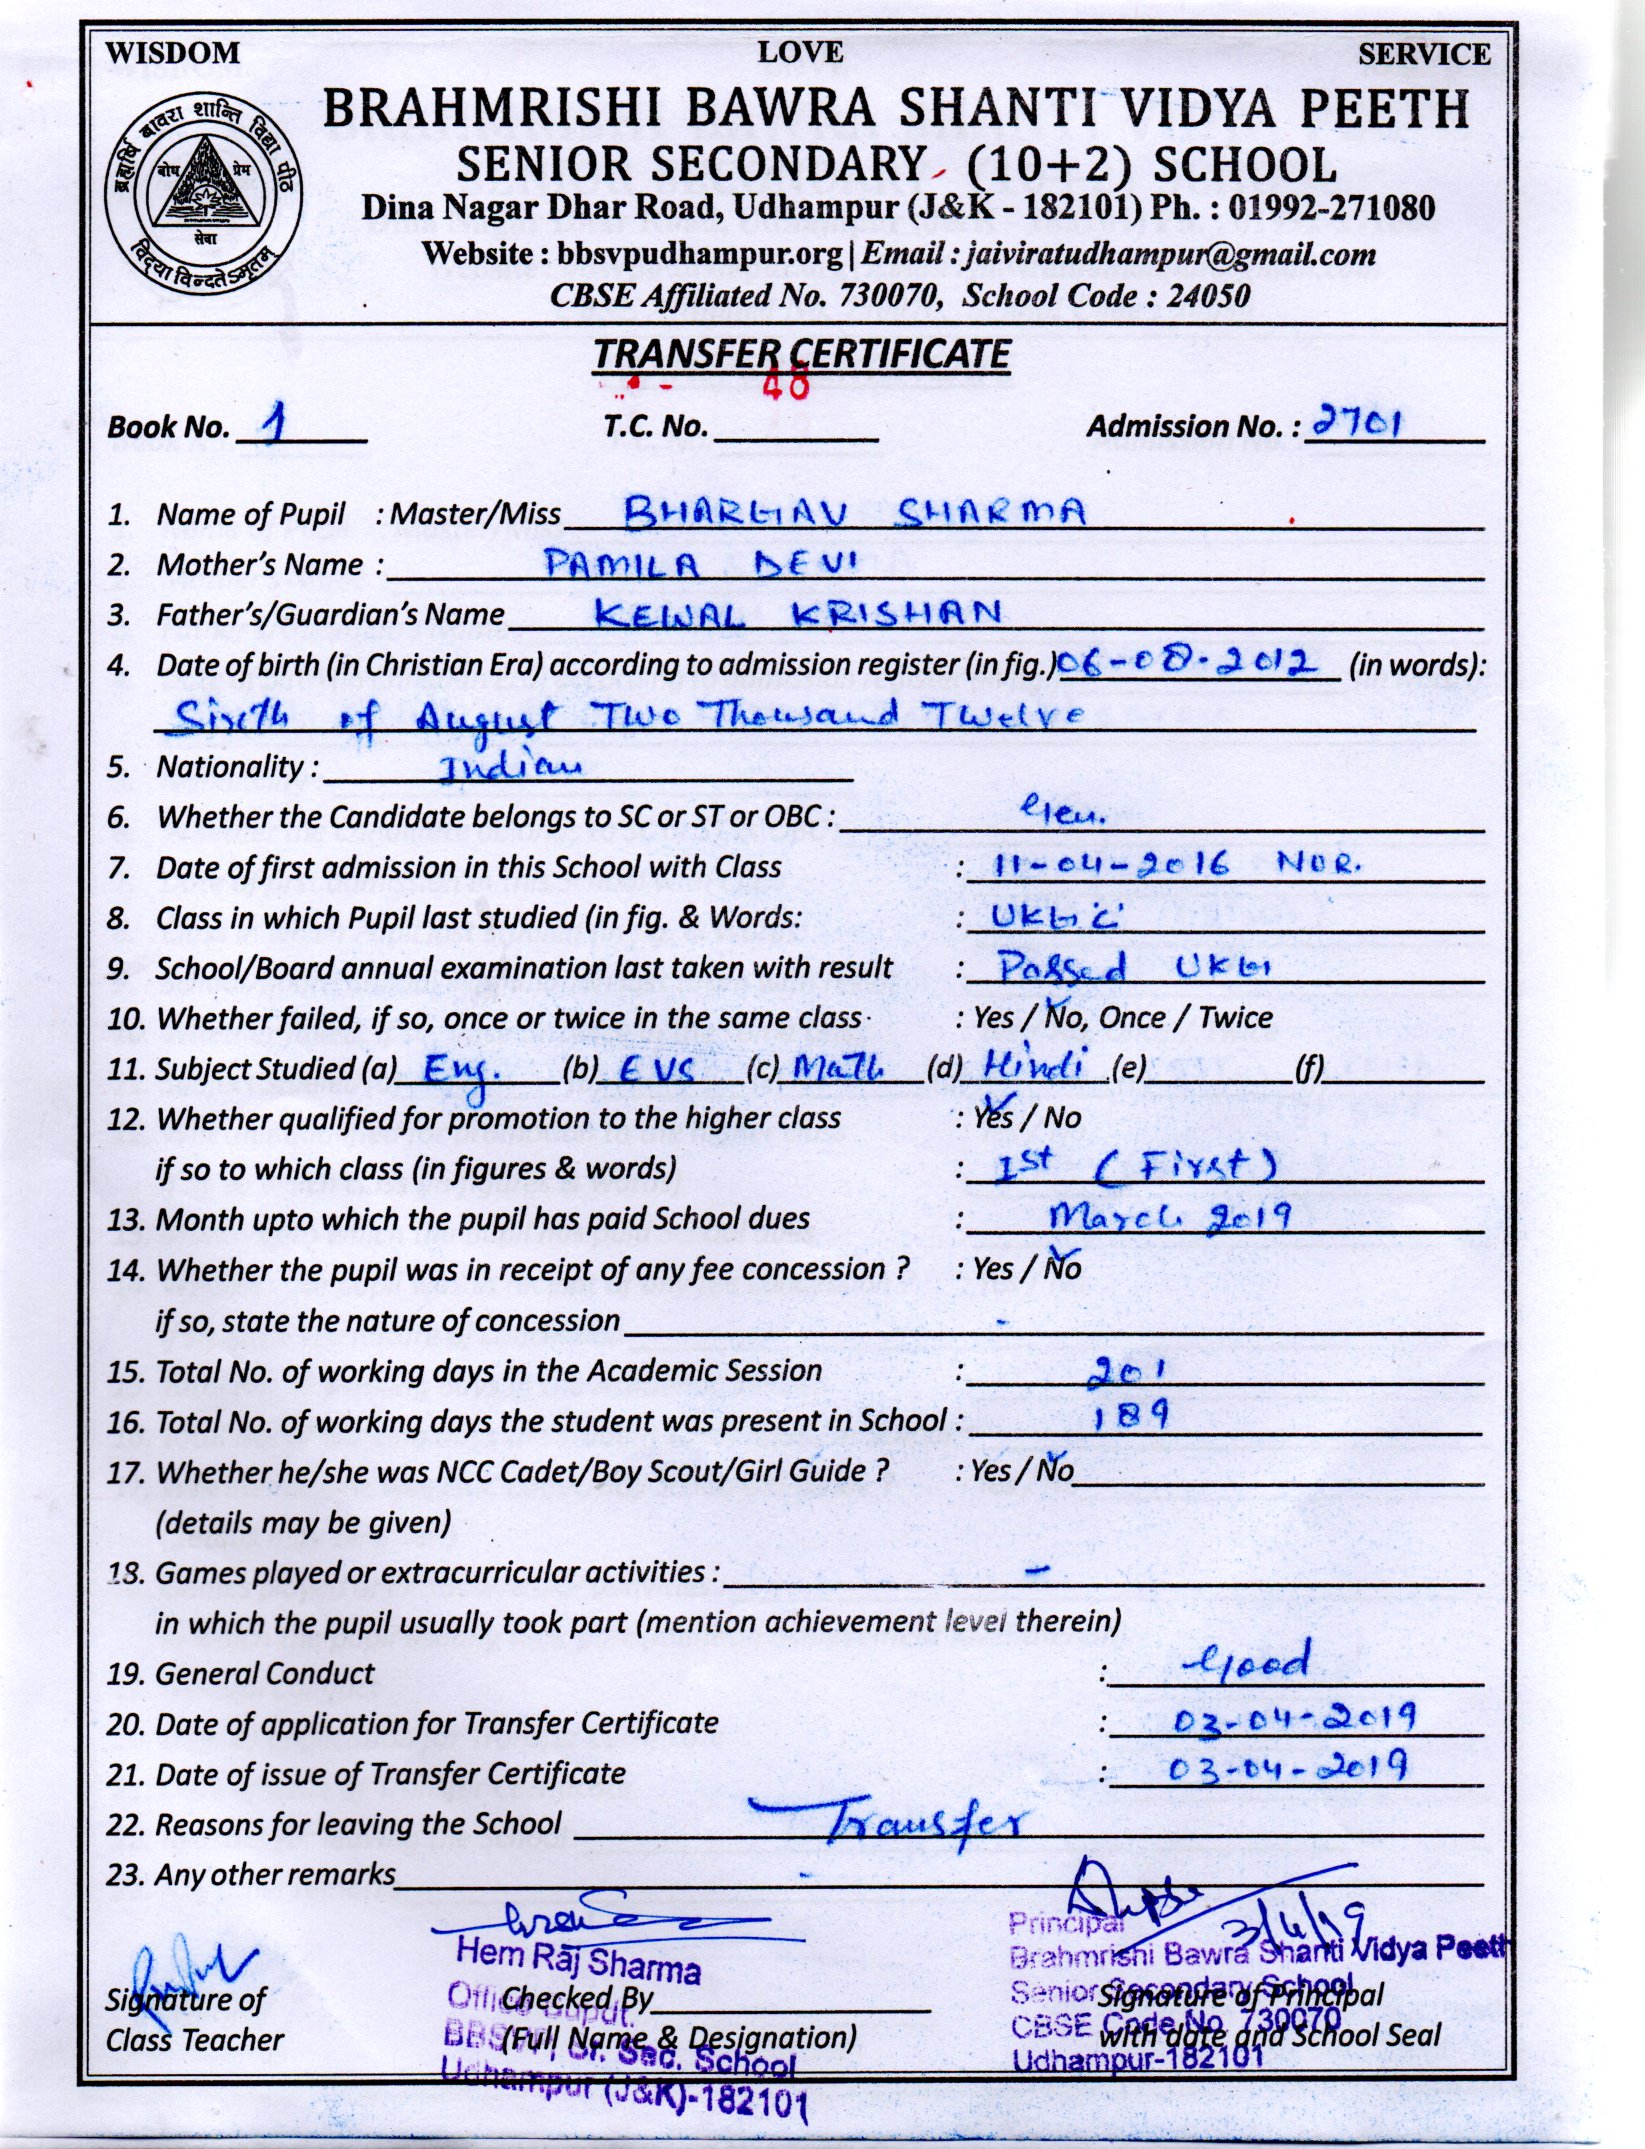 WISDOM LOVE SERVICE
ब्रह्मर्षि बावरा शान्ति विद्या पीठ
बोध प्रेम
सेवा
विद्यया विन्दतेऽमृतम्
BRAHMRISHI BAWRA SHANTI VIDYA PEETH
SENIOR SECONDARY (10+2) SCHOOL
Dina Nagar Dhar Road, Udhampur (J&K - 182101) Ph. : 01992-271080
Website : bbsvpudhampur.org | Email : jaiviratudhampur@gmail.com
CBSE Affiliated No. 730070, School Code : 24050
TRANSFER CERTIFICATE
Book No. 1 T.C. No. 48 Admission No. : 2701
1. Name of Pupil : Master/Miss BHARGAV SHARMA
2. Mother's Name : PAMILA DEVI
3. Father's/Guardian's Name KEWAL KRISHAN
4. Date of birth (in Christian Era) according to admission register (in fig.) 06-08-2012 (in words):
Sixth of August Two Thousand Twelve
5. Nationality : Indian
6. Whether the Candidate belongs to SC or ST or OBC : Gen.
7. Date of first admission in this School with Class : 11-04-2016 NUR.
8. Class in which Pupil last studied (in fig. & Words: : UKG 'C'
9. School/Board annual examination last taken with result : Passed UKG
10. Whether failed, if so, once or twice in the same class : Yes / No, Once / Twice
11. Subject Studied (a) Eng. (b) EVS (c) Math (d) Hindi (e) (f)
12. Whether qualified for promotion to the higher class : Yes / No
if so to which class (in figures & words) : 1st (First)
13. Month upto which the pupil has paid School dues : March 2019
14. Whether the pupil was in receipt of any fee concession ? : Yes / No
if so, state the nature of concession -
15. Total No. of working days in the Academic Session : 201
16. Total No. of working days the student was present in School : 189
17. Whether he/she was NCC Cadet/Boy Scout/Girl Guide ? : Yes / No
(details may be given)
18. Games played or extracurricular activities : -
in which the pupil usually took part (mention achievement level therein)
19. General Conduct : Good
20. Date of application for Transfer Certificate : 03-04-2019
21. Date of issue of Transfer Certificate : 03-04-2019
22. Reasons for leaving the School Transfer
23. Any other remarks -
3/4/19
Principal
Hem Raj Sharma Brahmrishi Bawra Shanti Vidya Peeth
Office Supdt. Senior Secondary School
Signature of Checked By Signature of Principal
CBSE Code No. 730070
Class Teacher (Full Name & Designation) with date and School Seal
Sr. Sec. School
Udhampur-182101
Udhampur (J&K)-182101